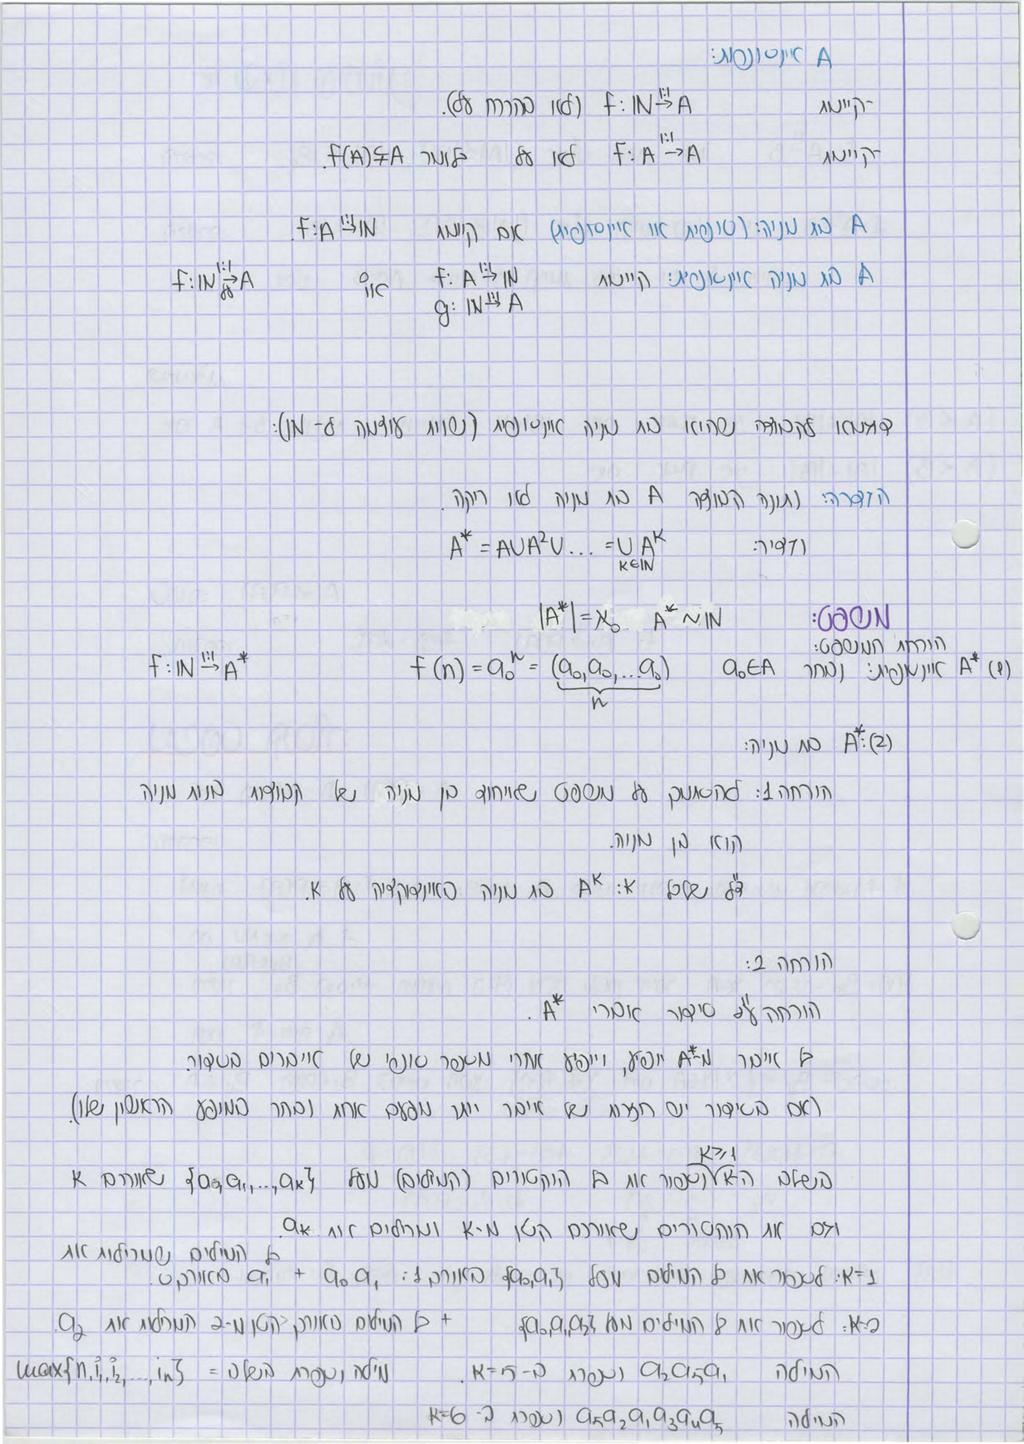 A אינסופית:
-קיימת f: ℕ →^{1:1} A (לאו בהכרח על).
-קיימת f: A →^{1:1} A לאו על כלומר f(A)⊊A.
A בת מניה: (סופית או אינסופית) אם קיימת f: A →^{1:1} ℕ.
A בת מניה אינסופית: קיימת f: A →^{1:1} ℕ או f: ℕ →^{1:1}_{על} A
g: ℕ →^{1:1} A
דוגמא לקבוצה שהיא בת מניה אינסופית (שוות עוצמה ל-ℕ):
הגדרה: נתונה קבוצה A בת מניה לא ריקה.
נגדיר: A* = A∪A²∪... = ∪_{k∈ℕ} A^k
משפט: A*~ℕ |A*|=ℵ₀
הוכחת המשפט:
(1) A* אינסופית: נבחר a₀∈A f(n)=a₀ⁿ=(a₀,a₀,...a₀) f: ℕ →^{1:1} A*
n
(2) A*: בת מניה:
הוכחה 1: להסתמך על משפט שאיחוד בן מניה של קבוצות בנות מניה
הוא בן מניה.
צ"ל שלכל k: A^k בת מניה באינדוקציה על k.
הוכחה 2:
הוכחה ע"י סיפור אברי A*.
כל איבר מ-A* יופיע, ויופיע אחרי מספר סופי של איברים בספור.
(אם בסיפור יש חזרות של איבר יותר מפעם אחת נבחר במופע הראשון שלו).
k≥1
בשלב ה-k נספור את כל הוקטורים (המילים) מעל {a₀,a₁,...,a_k} שאורכם k
וגם את הוקטורים שאורכם קטן מ-k ומכילים את a_k.
k=1: לספור את כל המילים מעל {a₀,a₁} באורך 1: a₀ a₁ + כל המילים שמכילות את a₁ באורך 0.
k=2: לספור את כל המילים מעל {a₀,a₁,a₂} + כל המילים באורך קטן מ-2 המכילות את a₂.
המילה a₂a₅a₁ נספרת ב-k=5. מילה נספרת בשלב = max{n,i₁,i₂,...,i_n}
המילה a₅a₂a₁a₃a₄a₅ נספרת ב-k=6